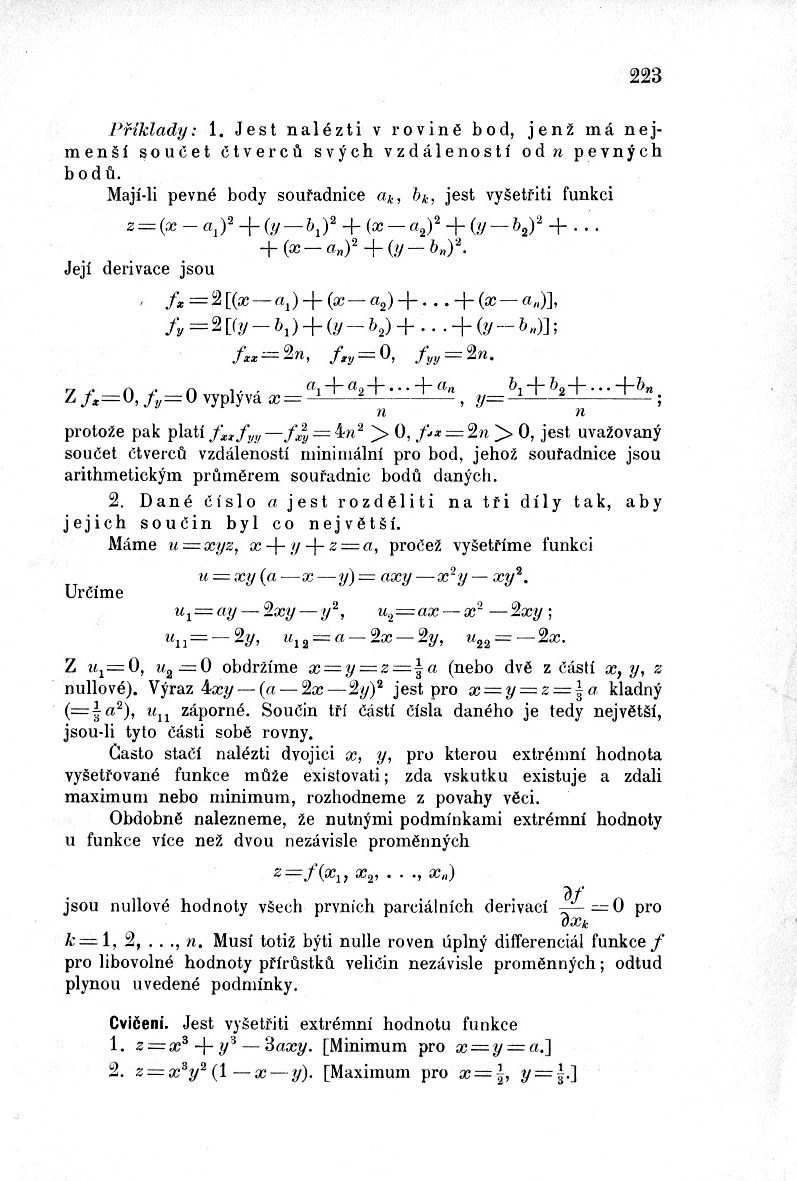 223
Příklady: 1. Jest nalézti v rovině bod, jenž má nej-
menší součet čtverců svých vzdáleností od n pevných
bodů.
Mají-li pevné body souřadnice aₖ, bₖ, jest vyšetřiti funkci
z = (x — a₁)² + (y — b₁)² + (x — a₂)² + (y — b₂)² + ...
+ (x — aₙ)² + (y — bₙ)².
Její derivace jsou
fₓ = 2 [(x — a₁) + (x — a₂) + ... + (x — aₙ)],
f_y = 2 [(y — b₁) + (y — b₂) + ... + (y — bₙ)];
f_xx = 2n, f_xy = 0, f_yy = 2n.
Z fₓ = 0, f_y = 0 vyplývá x = (a₁ + a₂ + ... + aₙ)/n, y = (b₁ + b₂ + ... + bₙ)/n;
protože pak platí f_xx f_yy — f_xy² = 4n² > 0, f_xx = 2n > 0, jest uvažovaný
součet čtverců vzdáleností minimální pro bod, jehož souřadnice jsou
arithmetickým průměrem souřadnic bodů daných.
2. Dané číslo a jest rozděliti na tři díly tak, aby
jejich součin byl co největší.
Máme u = xyz, x + y + z = a, pročež vyšetříme funkci
u = xy (a — x — y) = axy — x²y — xy².
Určíme
u₁ = ay — 2xy — y², u₂ = ax — x² — 2xy;
u₁₁ = — 2y, u₁₂ = a — 2x — 2y, u₂₂ = — 2x.
Z u₁ = 0, u₂ = 0 obdržíme x = y = z = ⅓ a (nebo dvě z částí x, y, z
nullové). Výraz 4xy — (a — 2x — 2y)² jest pro x = y = z = ⅓ a kladný
(= ⅓ a²), u₁₁ záporné. Součin tří částí čísla daného je tedy největší,
jsou-li tyto části sobě rovny.
Často stačí nalézti dvojici x, y, pro kterou extrémní hodnota
vyšetřované funkce může existovati; zda vskutku existuje a zdali
maximum nebo minimum, rozhodneme z povahy věci.
Obdobně nalezneme, že nutnými podmínkami extrémní hodnoty
u funkce více než dvou nezávisle proměnných
z = f(x₁, x₂, . . ., xₙ)
jsou nullové hodnoty všech prvních parciálních derivací ∂f/∂xₖ = 0 pro
k = 1, 2, . . ., n. Musí totiž býti nulle roven úplný differenciál funkce f
pro libovolné hodnoty přírůstků veličin nezávisle proměnných; odtud
plynou uvedené podmínky.
Cvičení. Jest vyšetřiti extrémní hodnotu funkce
1. z = x³ + y³ — 3axy. [Minimum pro x = y = a.]
2. z = x³y² (1 — x — y). [Maximum pro x = ½, y = ⅓.]